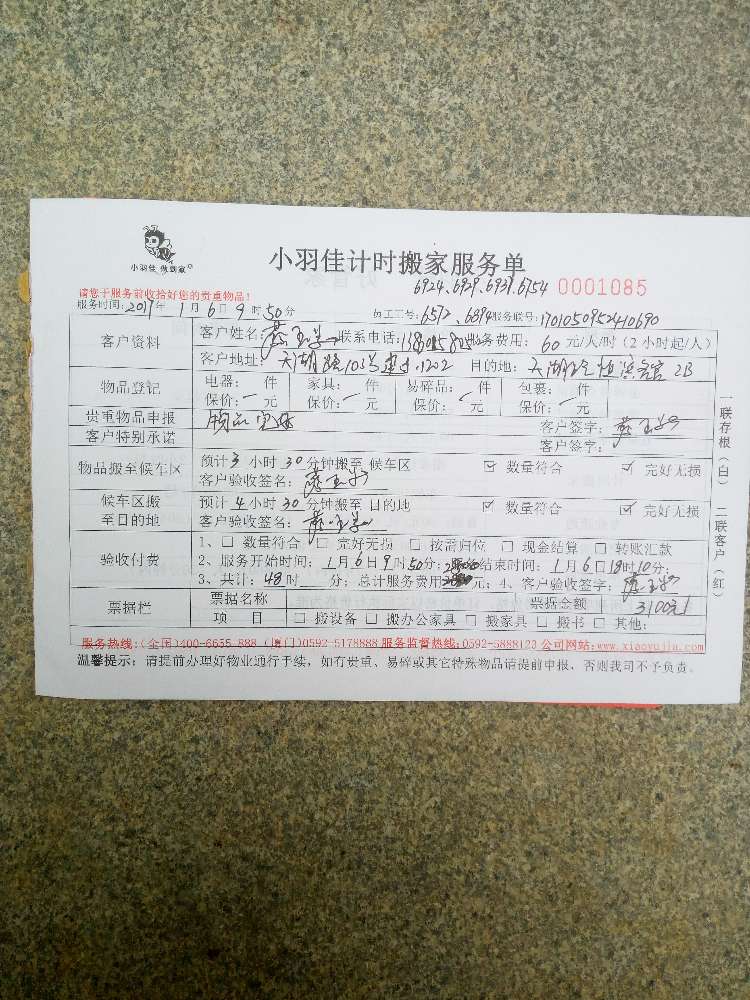 小羽佳 做到家®
小羽佳计时搬家服务单
6924、6929、6939、6754 0001085
请您于服务前收拾好您的贵重物品!
服务时间:2017年 1月6日9时50分 员工工号:6572、6894 服务联号:1701050952410690
客户资料 客户姓名: 联系电话: 服务费用: 60 元/人/时(2小时起/人)
客户地址: 天湖路103号 1202 目的地: 天湖路恒 2B
物品登记 电器: 件 家具: 件 易碎品: 件 包裹: 件
保价: 元 保价: 元 保价: 元 保价: 元
贵重物品申报 物品完好 客户签字:
客户特别承诺 客户签字:
物品搬至候车区 预计3小时30分钟搬至 候车区 ☑ 数量符合 ☑ 完好无损
客户验收签名:
候车区搬至目的地 预计4小时30分钟搬至 目的地 ☑ 数量符合 ☑ 完好无损
客户验收签名:
验收付费 1、□ 数量符合 □ 完好无损 □ 按需归位 □ 现金结算 □ 转账汇款
2、服务开始时间: 1月6日9时50分; 结束时间: 1月6日18时10分;
3、共计: 48时 分; 总计服务费用 元; 4、客户验收签字:
票据栏 票据名称 票据金额 3100元
项 目 □ 搬设备 □ 搬办公家具 □ 搬家具 □ 搬书 □ 其他:
一联存根(白) 二联客户(红)
服务热线:(全国)400-6655-888 (厦门)0592-5178888 服务监督热线:0592-5888123 公司网站:www.xiaoyujia.com
温馨提示: 请提前办理好物业通行手续, 如有贵重、易碎或其它特殊物品请提前申报, 否则我司不予负责。